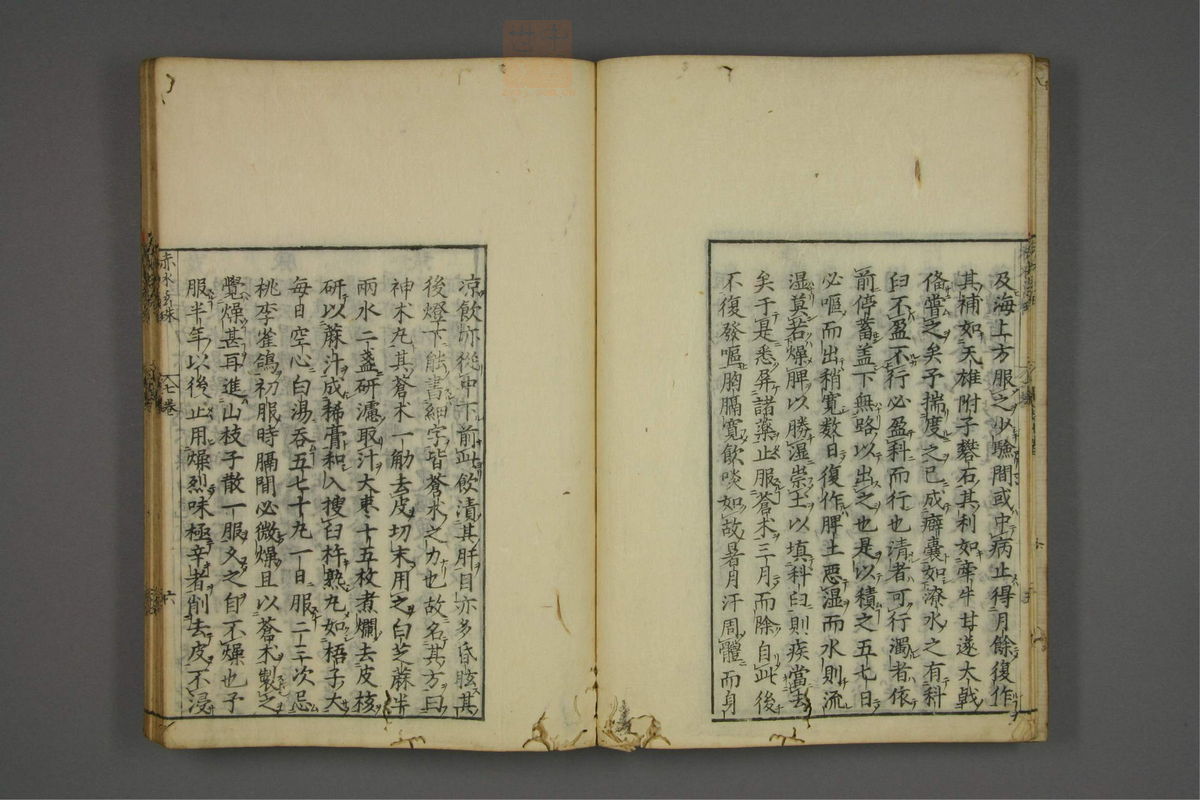 及海上方服之少驗間或中病止得月餘復作
其補如天雄附子礬石其利如牽牛甘遂大戟
備嘗之矣予揣度之已成癖囊如潦水之有科
臼不盈不行必盈科而行也清者可行濁者依
前停蓄蓋下無路以出之也是以積之五七日
必嘔而出稍寛数日復作脾土惡湿而水則流
湿莫若燥脾以勝湿崇土以填科臼則疾當去
矣于是悉屏諸藥止服蒼术三月而除自此後
不復發嘔胸膈寛飲啖如故暑月汗周體而身
凉飲亦從中下前此飲漬其肝目亦多昏眩其
後燈下能書細字皆蒼术之力也故名其方曰
神术丸其蒼术一觔去皮切末用之白芝蔴半
兩水二盞研濾取汁大枣十五枚煮爛去皮核
研以蔴汁成稀膏和入搜臼杵熟丸如梧子大
每日空心白湯呑五七十丸一日服二三次忌
桃李雀鴿初服時膈間必微燥且以蒼术製之
覺燥甚再進山枝子散一服久之自不燥也予
服半年以後止用燥烈味極辛者削去皮不浸
赤水玄珠 七卷 六